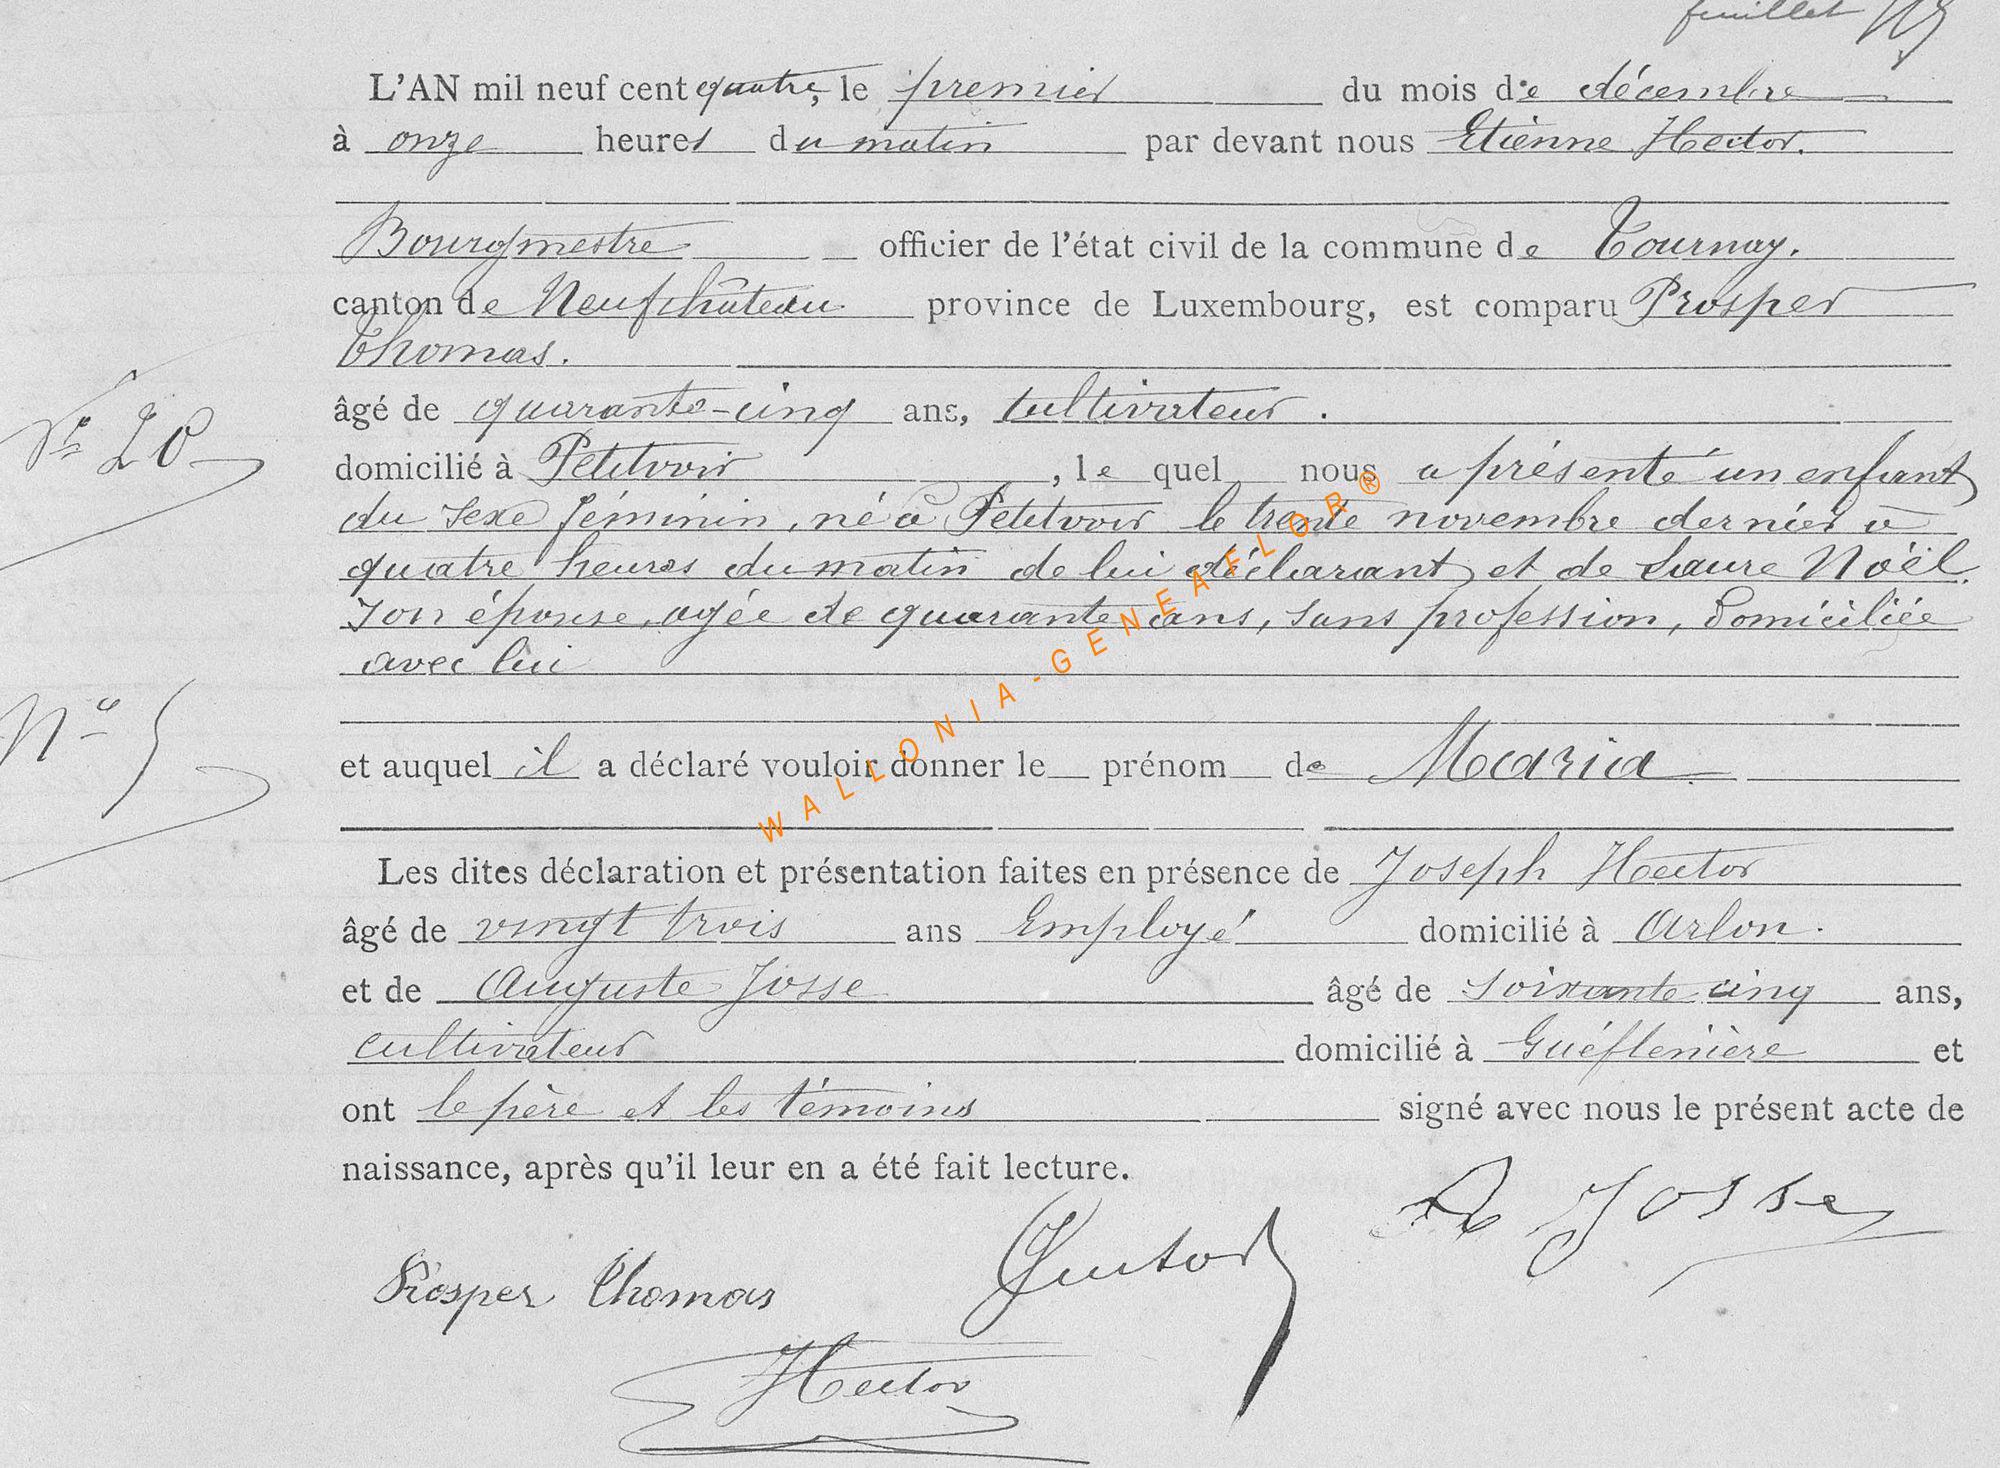 feuillet
L'AN mil neuf cent quatre, le premier du mois de décembre
à onze heures du matin par devant nous Etienne Hector.
Bourgmestre officier de l'état civil de la commune de Tournay.
canton de Neufchâteau province de Luxembourg, est comparu Prosper
Thomas.
âgé de quarante-cinq ans, cultivateur.
N° 20
domicilié à Petitvoir, le quel nous a présenté un enfant
du sexe féminin, né à Petitvoir le trente novembre dernier à
quatre heures du matin de lui déclarant et de Laure Noël
son épouse, agée de quarante ans, sans profession, domiciliée
avec lui
WALLONIA-GENEAFLOR®
et auquel il a déclaré vouloir donner le prénom de Maria
Les dites déclaration et présentation faites en présence de Joseph Hector
âgé de vingt trois ans Employé domicilié à Arlon.
et de Auguste Josse âgé de soixante cinq ans,
cultivateur domicilié à et
ont le père et les témoins signé avec nous le présent acte de
naissance, après qu'il leur en a été fait lecture.
Josse
Prosper Thomas
Hector